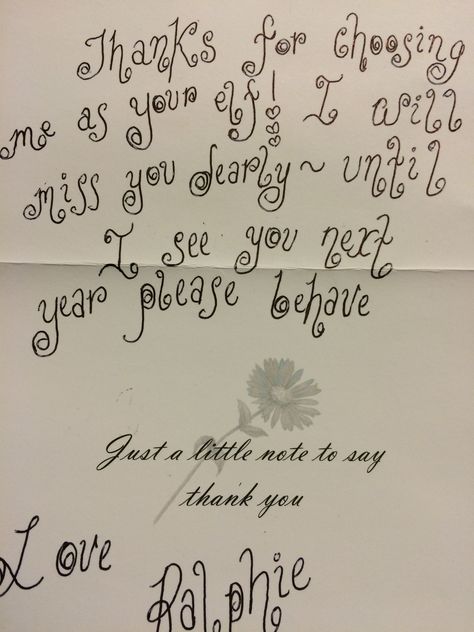 Thanks for choosing
me as your elf! I will
miss you dearly ~ until
I see you next
year please behave
Just a little note to say
thank you
Love
Ralphie